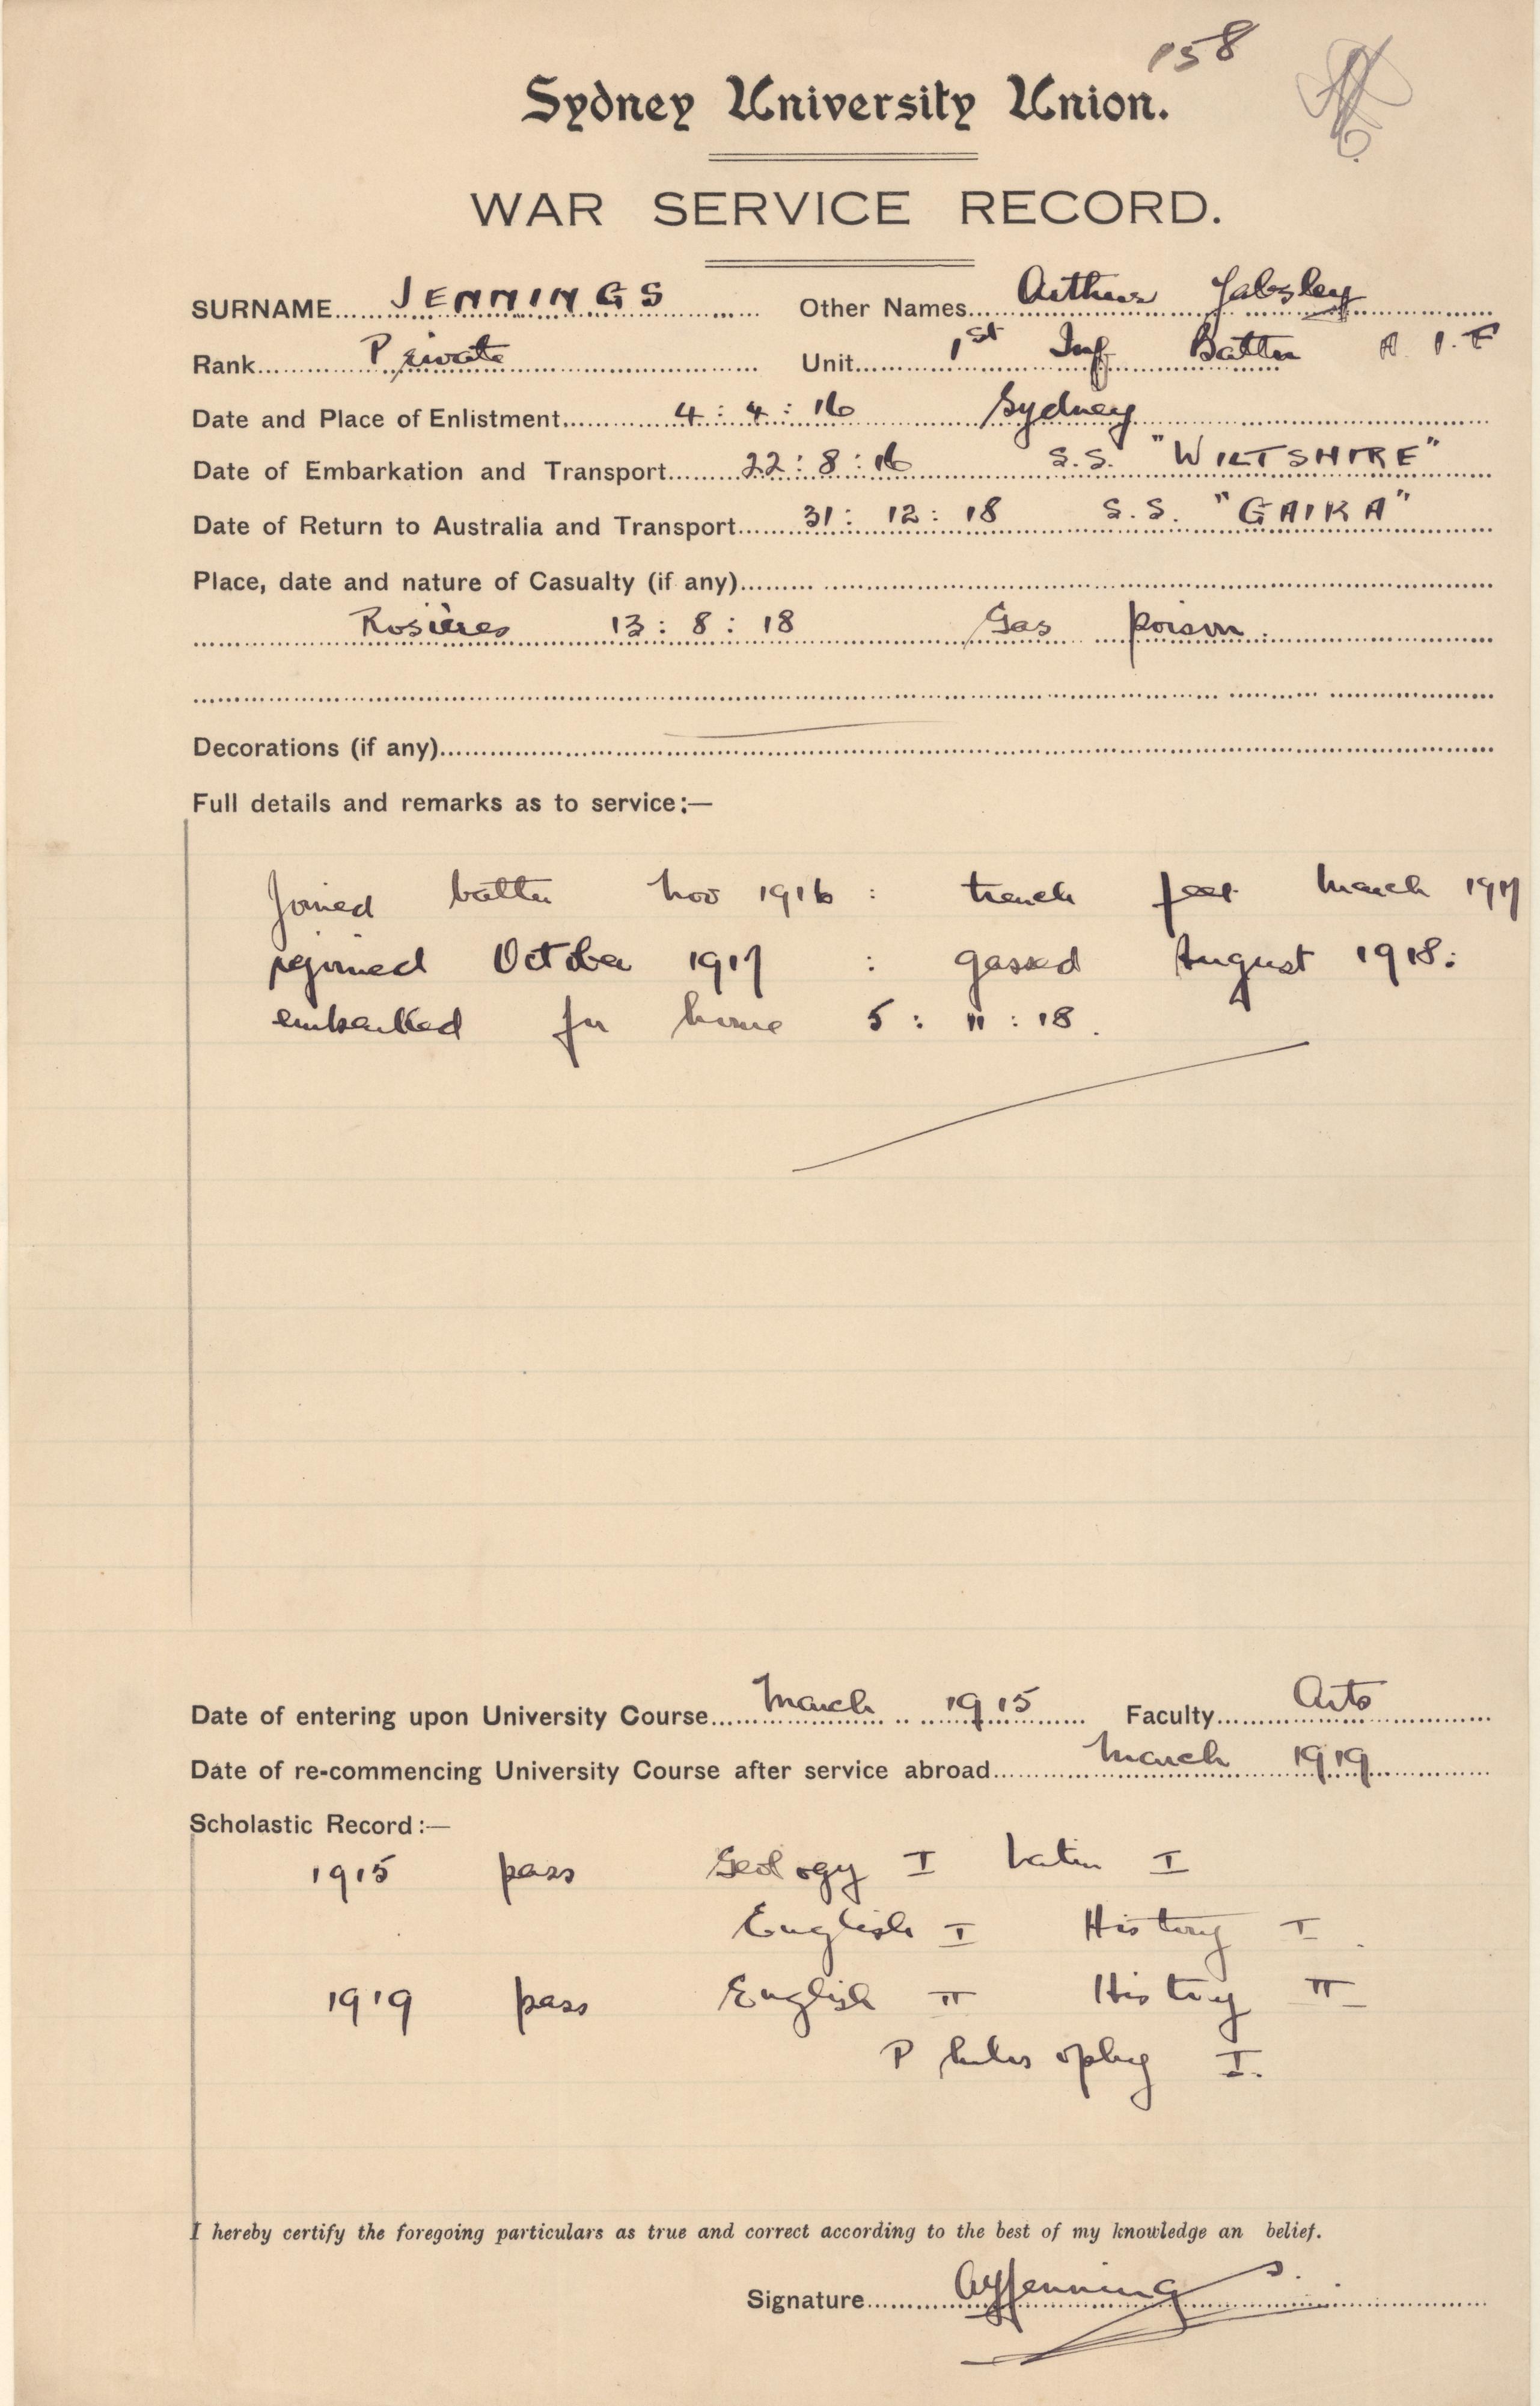 158
Sydney University Union.
WAR SERVICE RECORD.
SURNAME JENNINGS Other Names Arthur Yabsley
Rank Private Unit 1st Inf Battn A.I.F
Date and Place of Enlistment 4:4:16 Sydney
Date of Embarkation and Transport 22:8:16 S.S. "WILTSHIRE"
Date of Return to Australia and Transport 31:12:18 S.S. "GAIKA"
Place, date and nature of Casualty (if any)
Rosières 13:8:18 Gas poison.
Decorations (if any)
Full details and remarks as to service:—
Joined battn Nov 1916 : trench feet March 1917
rejoined October 1917 : gassed August 1918:
embarked for home 5:11:18.
Date of entering upon University Course March 1915 Faculty Arts
Date of re-commencing University Course after service abroad March 1919
Scholastic Record:—
1915 pass Geology I Latin I
English I History I.
1919 pass English II History II
Philosophy I.
I hereby certify the foregoing particulars as true and correct according to the best of my knowledge an belief.
Signature AYJennings.